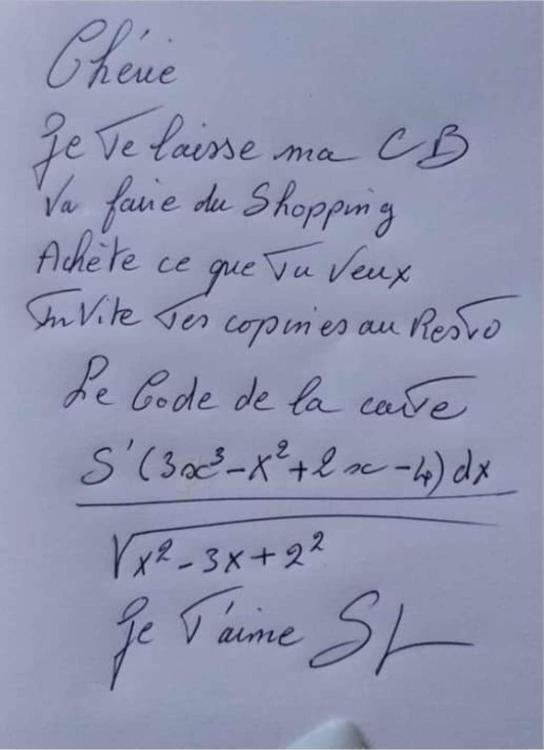 Chérie
Je Te laisse ma CB
Va faire du Shopping
Achète ce que Tu Veux
InVite Tes copines au Resto
Le Code de la carte
S'(3x³-x²+2x-4)dx
√x²-3x+2²
Je T'aime